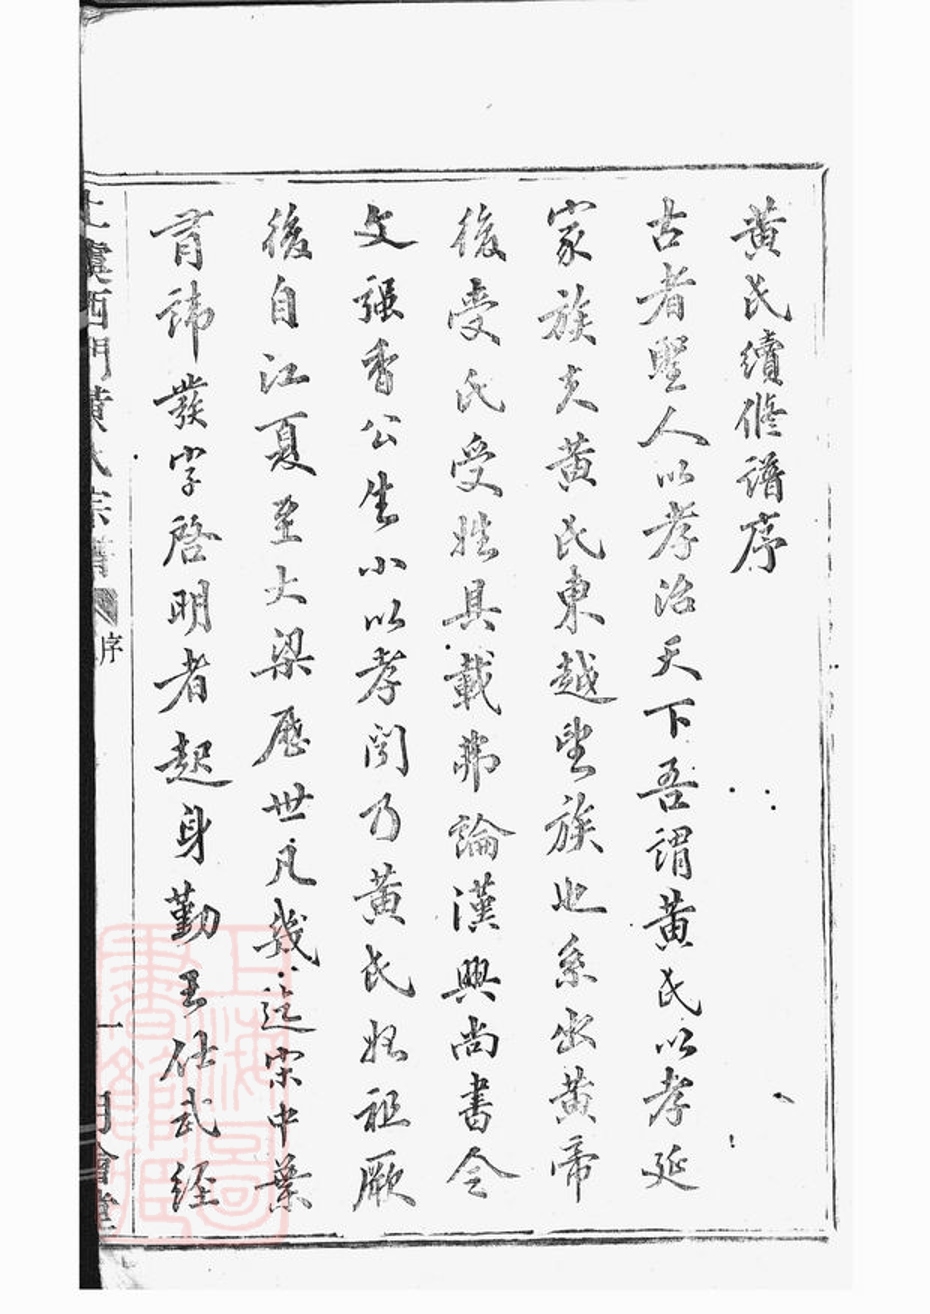 黃氏續修譜序
古者聖人以孝治天下吾謂黃氏以孝延
家族夫黃氏東越望族也系出黃帝
後受氏受姓具載弗論漢興尚書令
文強香公生小以孝聞乃黃氏始祖厥
後自江夏至大梁歷世凡幾迄宋中葉
有諱發字啓明者起身勤王仕武經
上虞西門黃氏宗譜
序
一
月會堂
上海圖書館藏